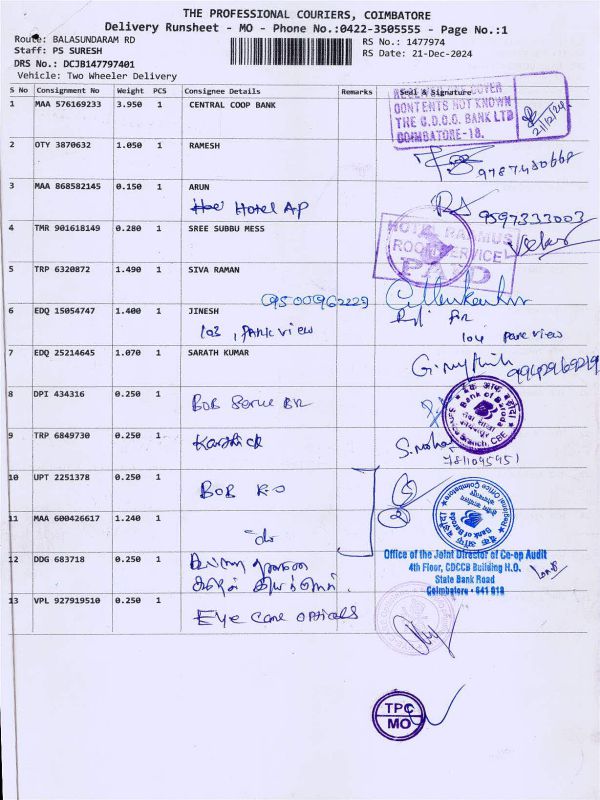 THE PROFESSIONAL COURIERS, COIMBATORE
Delivery Runsheet - MO - Phone No.:0422-3505555 - Page No.:1
Route: BALASUNDARAM RD
RS No.: 1477974
Staff: PS SURESH
RS Date: 21-Dec-2024
DRS No.: DCJB147797401
Vehicle: Two Wheeler Delivery
S No Consignment No Weight PCS Consignee Details Remarks Seal & Signature
1 MAA 576169233 3.950 1 CENTRAL COOP BANK
COVER
CONTENTS NOT KNOWN
THE C.D.C.C. BANK LTD
COIMBATORE-18.
21/12/24
2 OTY 3870632 1.050 1 RAMESH
3 MAA 868582145 0.150 1 ARUN
Hotel AP
9597333003
4 TMR 901618149 0.280 1 SREE SUBBU MESS
HOTEL
ROOM SERVICE
PAID
5 TRP 6320872 1.490 1 SIVA RAMAN
9500962229
6 EDQ 15054747 1.400 1 JINESH
103, Park view
104 Park view
7 EDQ 25214645 1.070 1 SARATH KUMAR
8 DPI 434316 0.250 1 BOB Service BR
Bank of Baroda
Service Branch, CBE
9 TRP 6849730 0.250 1 Karthick
7811095951
10 UPT 2251378 0.250 1 BOB R.O
Bank of Baroda
Regional Office Coimbatore
11 MAA 600426617 1.240 1 do
Office of the Joint Director of Co-op Audit
4th Floor, CDCCB Building H.O.
State Bank Road
Coimbatore - 641 018
12 DDG 683718 0.250 1
13 VPL 927919510 0.250 1 Eye Care Opticals
TPC
MO